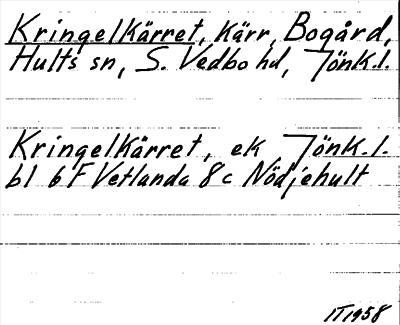 Kringelkärret, kärr, Bogård,
Hults sn, S. Vedbo hd, Jönk.l.
Kringelkärret, ek Jönk.l.
bl 6 F Vetlanda 8 c Nödjehult
IT 1958